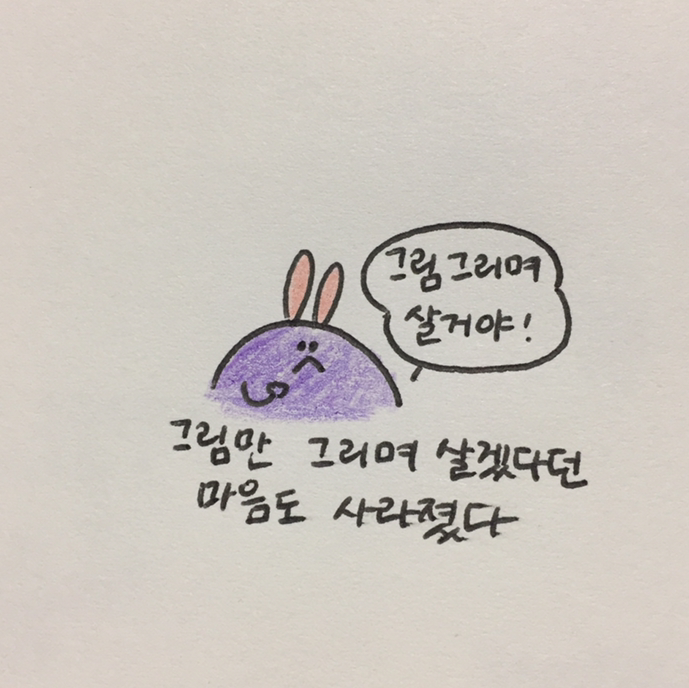 그림그리며
살거야!
그림만 그리며 살겠다던
마음도 사라졌다